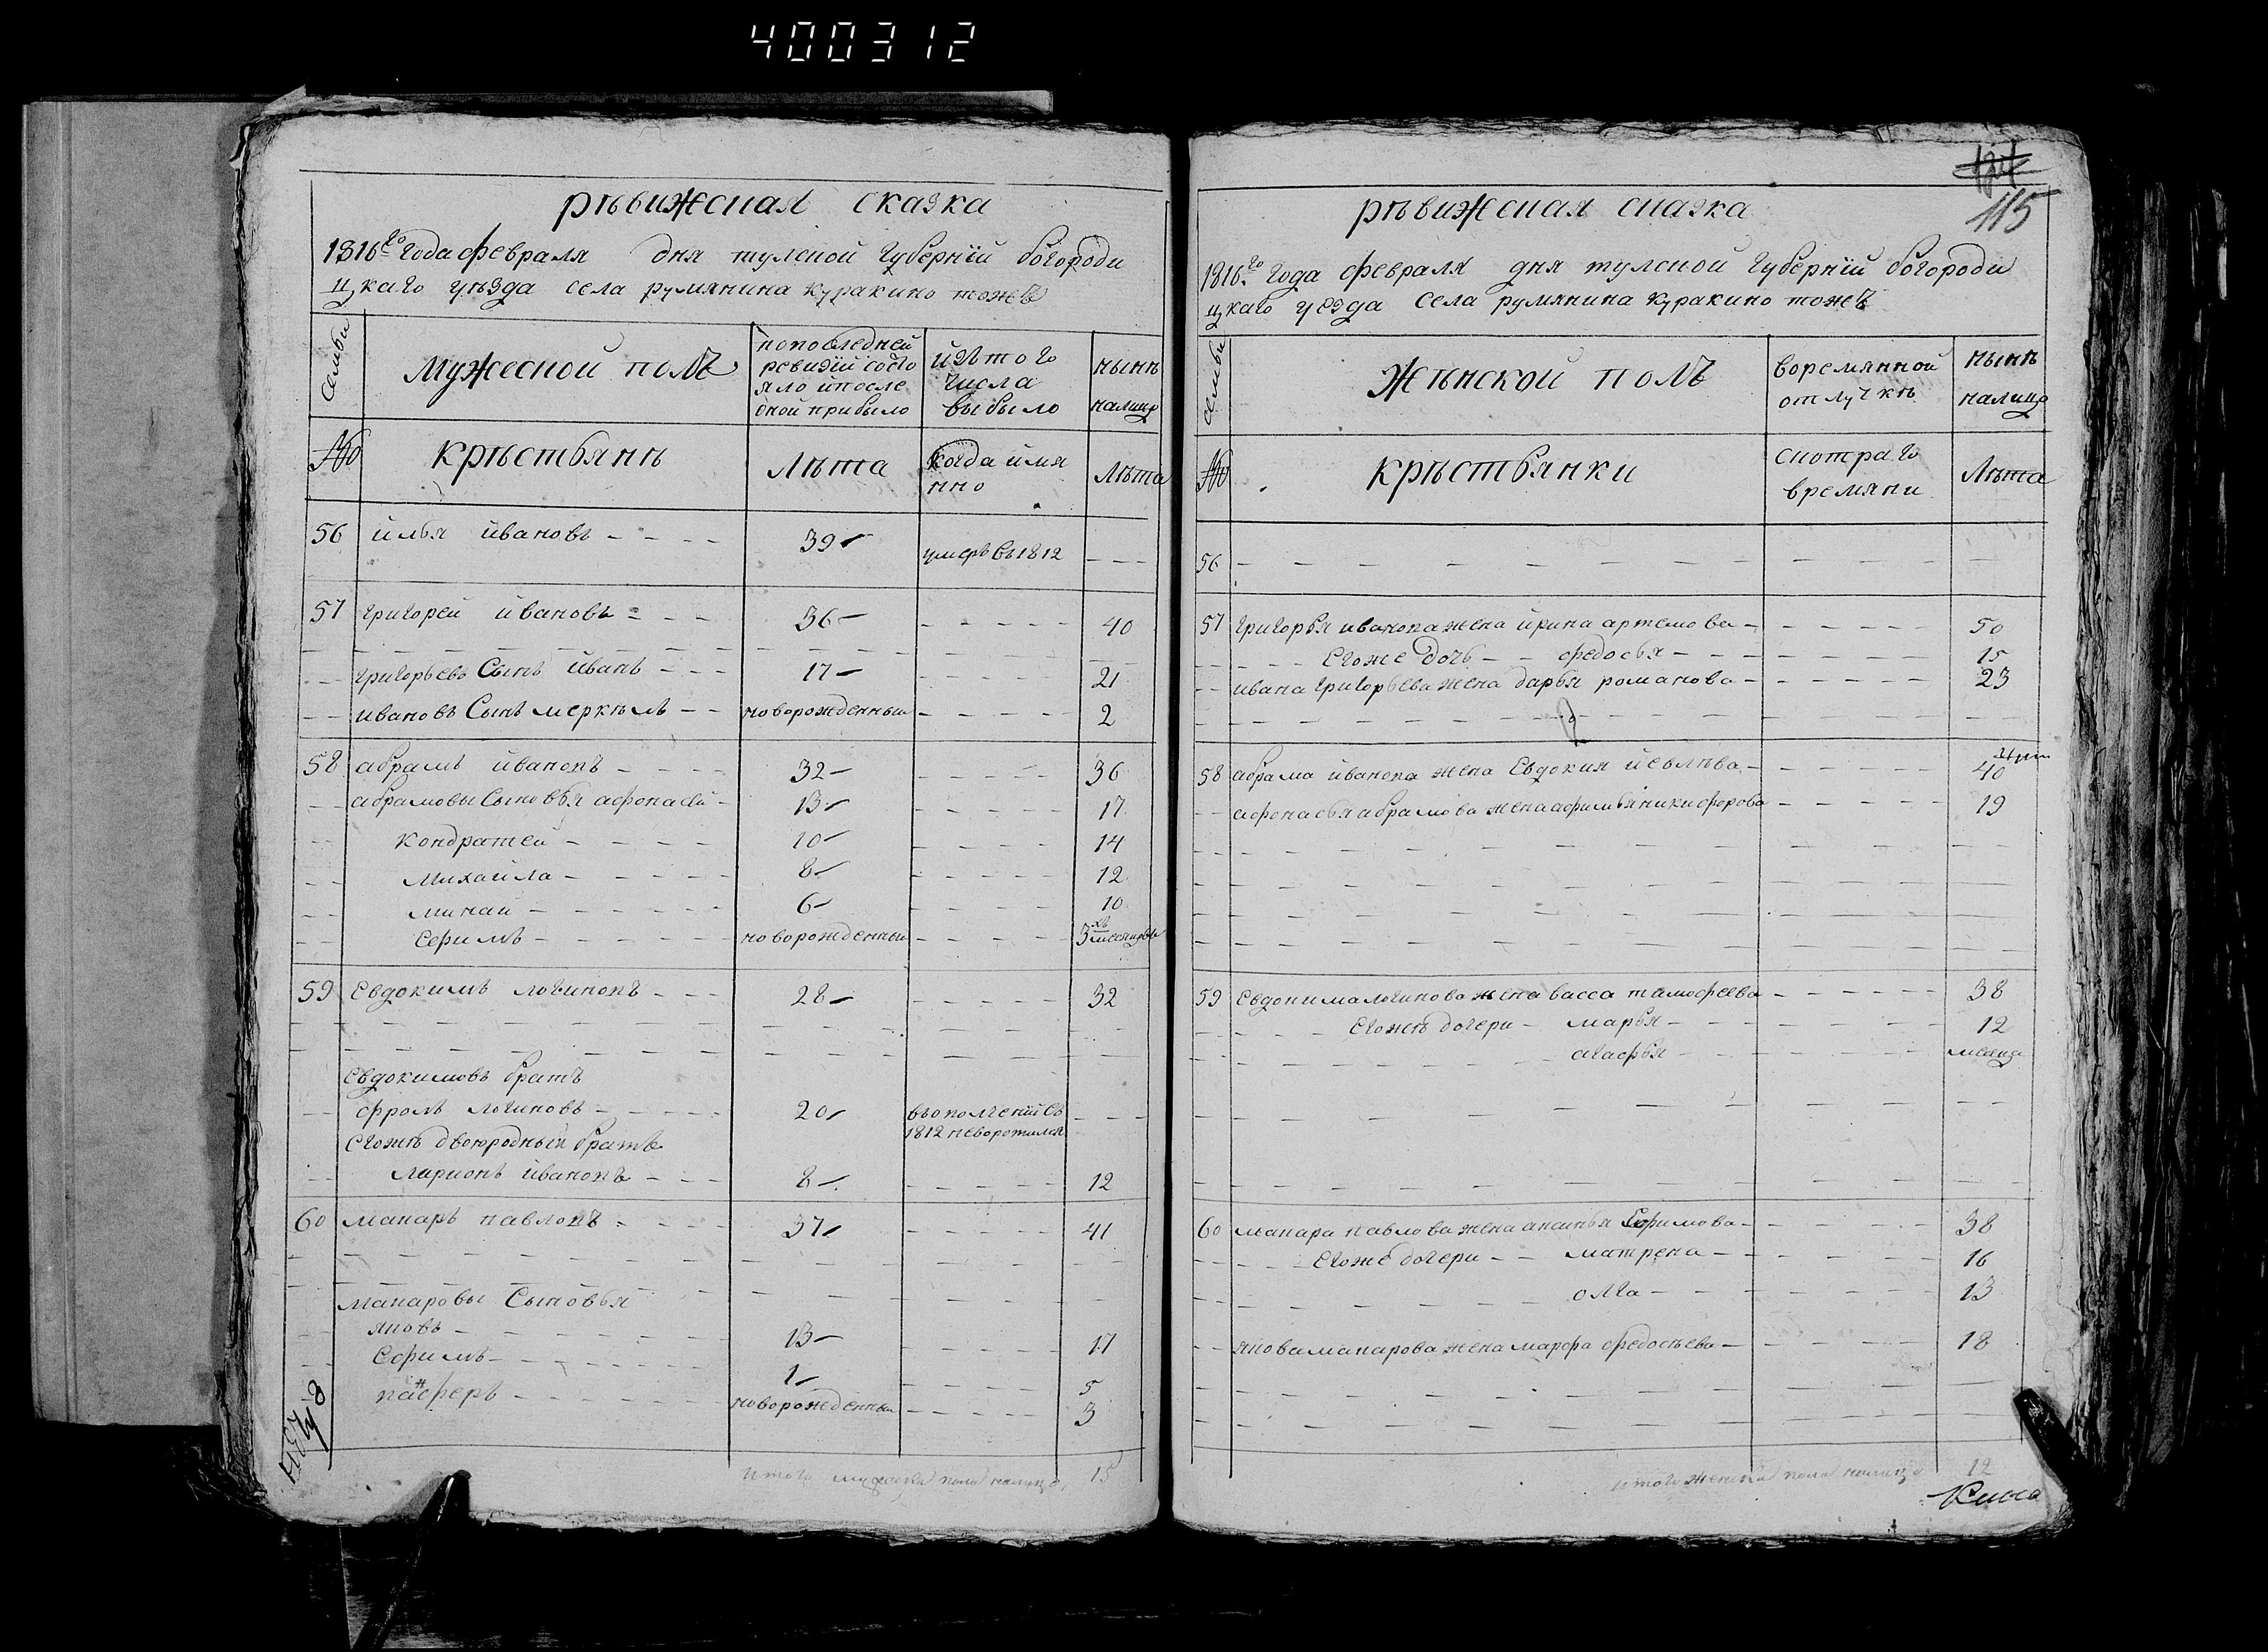 400312
рѣвижсная сказка
1816го года февраля дня тулсной губернїи богороди
цкаго уѣзда села румянина куракино тожъ
семьи
мужесной полъ
попоследней ревизїи состояло ипосле оной прибыло
изътого числа выбыло
нынѣ налицо
№
крѣстьянѣ
лѣта
когда имянно
лѣта
56 илья ивановъ 39 умеръ въ 1812
57 григореи ивановъ 36 40
григорьевъ Сынъ иванъ 17 21
ивановъ Сынъ меркѣлъ новорожденныи 2
58 абрамъ ивановъ 32 36
абрамовы Сыновья афонасеи 13 17
кондратеи 10 14
михаила 8 12
минаи 6 10
Сефимъ новорожденныи 3хъ месяцовъ
59 Евдокимъ логиновъ 28 32
Евдокимовъ братъ
фролъ логиновъ 20 въополчении съ
1812 неворотился
Егожѣ двоюродныи братъ
ларионъ ивановъ 8 12
60 макаръ павловъ 37 41
макаровы Сыновья
яковъ 13 17
Ефимъ 1 5
панферъ новорожденныи 3
итого мужеска пола налицо 15
115
рѣвижсная сказка
1816го года февраля дня тулсной губернїи богороди
цкаго уезда села румянина куракино тожъ
семьи
жѣнской полъ
воремянной отлучкѣ
нынѣ налицо
№
крѣстьянки
скотораго времяни
лѣта
56
57 григорья иванова жена ирина артемова 50
Егоже дочь федосья 15
ивана григорьева жена дарья романова 23
58 абрама иванова жена Евдокия 40
афонасья абрамова жена афимья никифорова 19
59 Евдокима логинова жена васса тимофеева 38
Егожѣ дочери марья 12
агафья месяца
60 макара павлова жена аксинья Ефимова 38
Егоже дочери матрена 16
олга 13
якова макарова жена марфа федосѣева 18
итого женска пола налицо 12